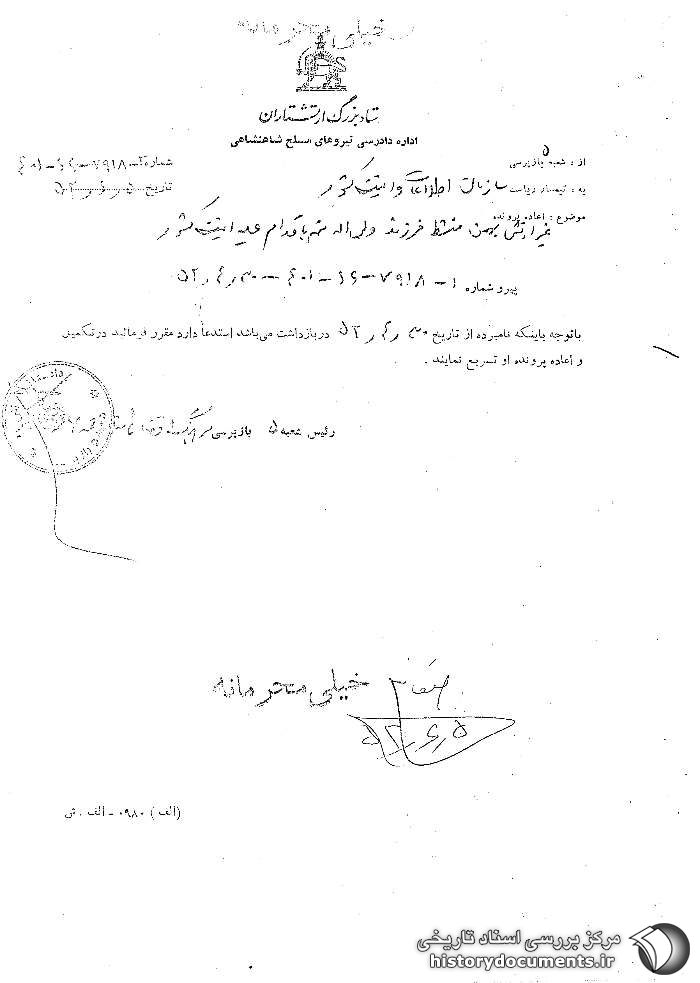 خیلی محرمانه
ستاد بزرگ ارتشتاران
اداره دادرسی نیروهای مسلح شاهنشاهی
از : شعبه ۵ بازپرسی
شماره ۲-۷۹۱۸-۱۶-۴۰۱
به : تیمسار ریاست سازمان اطلاعات و امنیت کشور
تاریخ
موضوع : اعاده پرونده
غیر ارتشی بهمن منشط فرزند ولی اله متهم باقدام علیه امنیت کشور
پیرو شماره ۱-۷۹۱۸-۱۶-۴۰۱-۳۰ر۴ر۵۲
باتوجه باینکه نامبرده از تاریخ ۳۰ر۴ر۵۲ دربازداشت می‌باشد استدعا دارد مقرر فرمائید درتکمیل
و اعاده پرونده او تسریع نمایند .
رئیس شعبه ۵ بازپرسی
خیلی محرمانه
۵۲ر۶ر۵
(الف) ۰۹۸۰ - الف . ش
مرکز بررسی اسناد تاریخی
historydocuments.ir